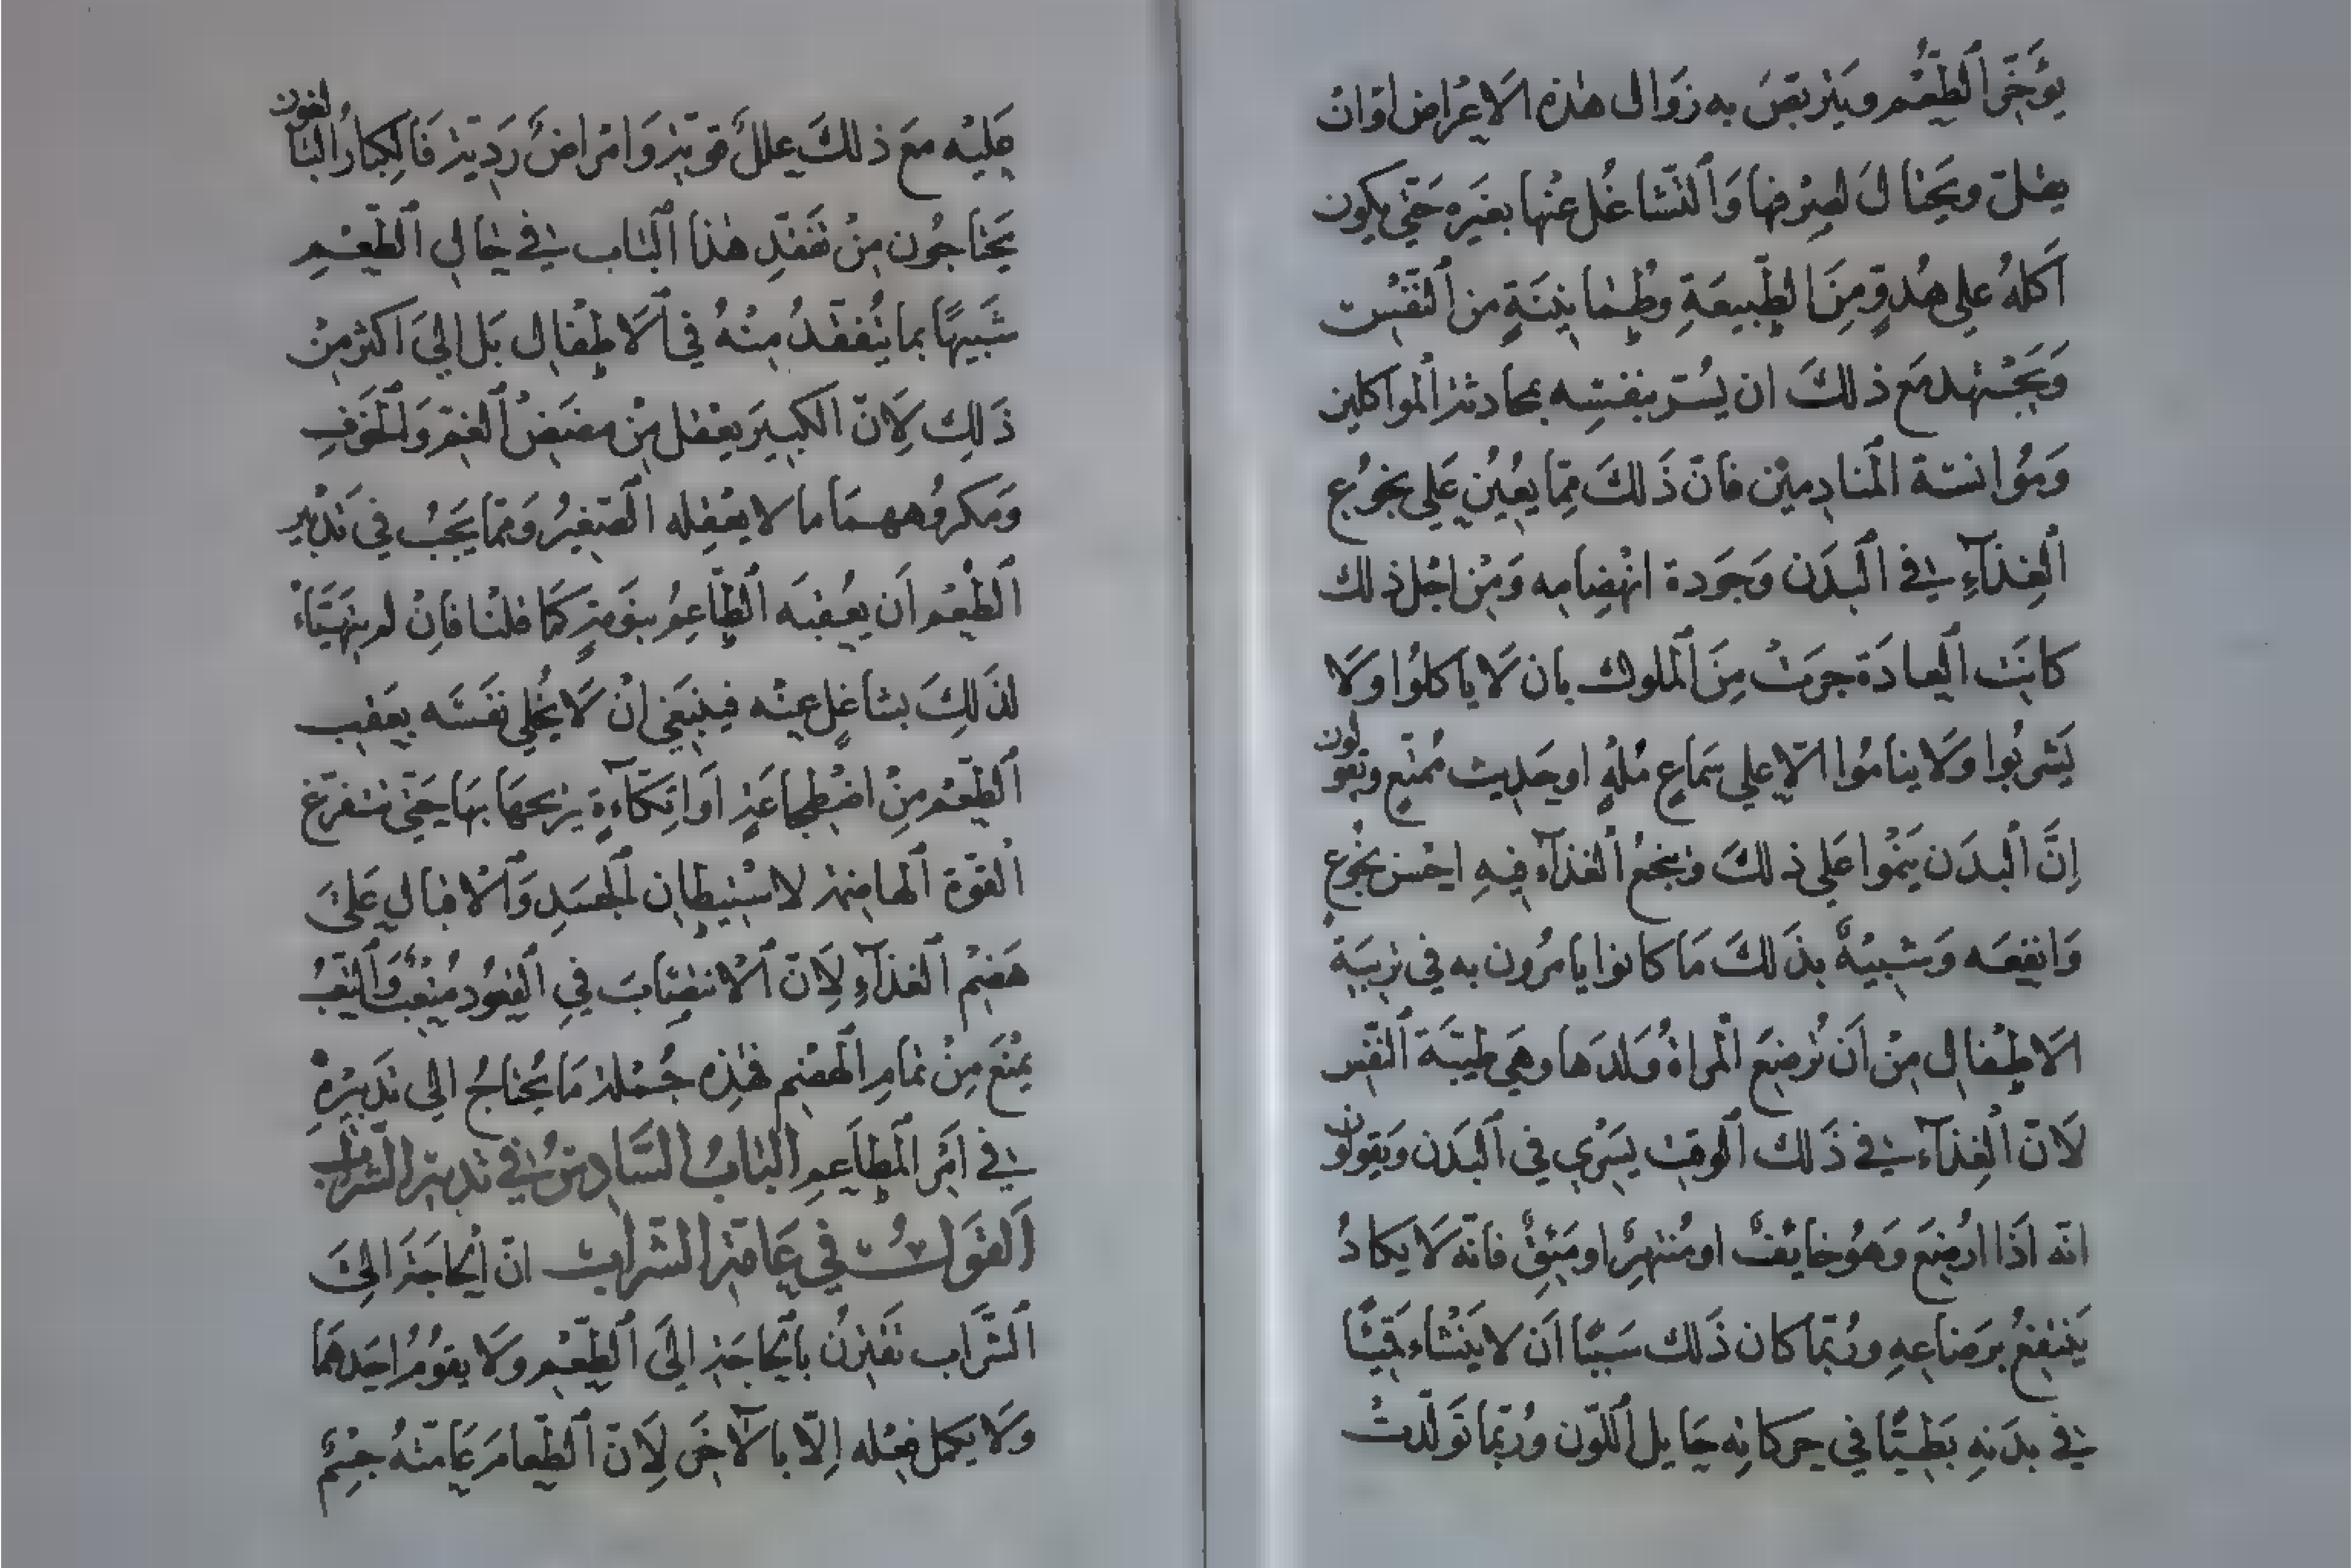 يُؤَخِّرَ الطُّعْم ويَتَربَّصَ به زَوَال هٰذه الاَعْرَاض اوْ ان
يعْللّ ويَحْتَالَ لصَرْفها وَالتَّشَاغُل عنْها بغَيره حَتّى يكون
اَكلهُ على هُدوٍّ مِنَ الطَّبيعَةِ وطُمانِينَةٍ من النّفْس
وَيَجْتهد مَع ذلكَ ان يُسَرّ بنفسِه بمحادثة المُواكلين
وَمُؤانسَة المنادِمِيْن فانّ ذَلكَ مِمّا يُعِيْن عَلى نجُوع
الغِذَآءِ في البَدَن وَجَودة انْهضَامِه وَمِنْ اجْل ذلك
كانَت العادَة جرَتْ مِنَ الملوك بان لَا ياكلُوا ولَا
يَشربُوا وَلَا ينامُوا الّا على سَماعِ مُلْهٍ او حَدِيث مُمْتِع ويَقولون
اِنَّ البدَن يَنمُوا عَلى ذلكَ ويَنجَعُ الغذآء فِيهِ احْسَن نجُوعٍ
وَانفعَه وَشَبِيهٌ بذَلكَ مَا كانوا يامرُون به في تربيَة
الاَطْفال مِنْ اَن تُرضِعَ المراةُ وَلدَها وهي طيّبَة النّفْس
لَانّ الغِذآء في ذَلك الوقت يَسْرِي في البَدَن وَيَقولون
انّه اذَا ارْضِعَ وَهُو خايفٌ او مُنتَهِرٌ او مَبِقٌ فانّه لَا يكادُ
يَنتفعُ برَضَاعِهِ ورُبّما كان ذَلك سَببًا اَن لا يَنْشَاء قَميًّا
في بدَنهِ بَطِيًّا في حركاتِه حَايل اللّون ورُبّما تولّدتْ
عليْه مَع ذلكَ علَلٌ قويّة وَامْراضٌ رَديّة فَالكبَارُ البَالغون
يَحْتاجُون مِنْ تفقّدِ هٰذا البَاب في حَالِ الطّعْمِ
شَبيهًا بما يُتَفقّدُ مِنْهُ في الاَطْفال بَل الي اَكثر مِنْ
ذَلك لِاَنّ الكبِيَر يعْقل مِنْ مضَضِ الغمّ وَالخَوف
وَمكرُوههمَا ما لا يعْقِله الصّغيرُ وَمّما يَجبُ في تدْبيْرِ
الطّعْم اَن يعُقبَه الطّاعِمُ بنَومَةٍ كمَا قلنَا فاِنْ لم يتهَيّاءْ
لذَلِكَ بشاغلٍ عنْه فينبَغي انْ لَا يُخْلي نفَسَه بعَقب
الطّعْم مِنْ اضْطِجاعَةٍ اَو اتِكآءةٍ يريحهَا بهَا حَتّى تتفرّغ
القوّة الهاضِمَة لاسْتبطان الجسَدِ وَالاقبال عَلىَ
هَضم الغذآءِ لِاَنّ الانتصَابَ في القعُود مُتْعِبٌ وَالتّعَبُ
يَمْنَع مِنْ تمامِ الهضْم فهٰذِه جُمْلة مَا يُحْتاجُ الى تدَبيْرِهِ
في اَمْر المَطاَعِم البَابُ السَّادِسُ في تدبير الشّراب
القوَلُ في عَامّة الشّراب انّ الحَاجَة الِىَ
الشَّرَاب تقتَرنُ بالحَاجَة الىَ الطّعْم ولَا يقومُ احَدهمَا
وَلَا يكمل فعْله اِلّا بالآخَر لِاَنّ الطّعامَ عَامّتهُ جِسْمٌ